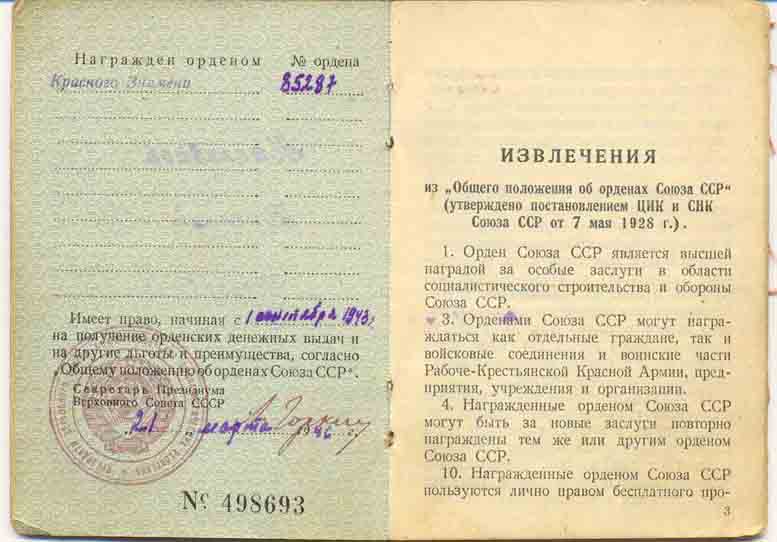 Награжден орденом № ордена
Красного Знамени 85287
Имеет право, начиная с 1 сентября 1943 г.
на получение орденских денежных выдач и
на другие льготы и преимущества, согласно
„Общему положению об орденах Союза ССР“.
Секретарь Президиума
Верховного Совета СССР
21 марта 1946 г.
№ 498693
ИЗВЛЕЧЕНИЯ
из „Общего положения об орденах Союза ССР“
(утверждено постановлением ЦИК и СНК
Союза ССР от 7 мая 1928 г.).
1. Орден Союза ССР является высшей
наградой за особые заслуги в области
социалистического строительства и обороны
Союза ССР.
3. Орденами Союза ССР могут награ-
ждаться как отдельные граждане, так и
войсковые соединения и воинские части
Рабоче-Крестьянской Красной Армии, пред-
приятия, учреждения и организации.
4. Награжденные орденом Союза ССР
могут быть за новые заслуги повторно
награждены тем же или другим орденом
Союза ССР.
10. Награжденные орденом Союза ССР
пользуются лично правом бесплатного про-
3